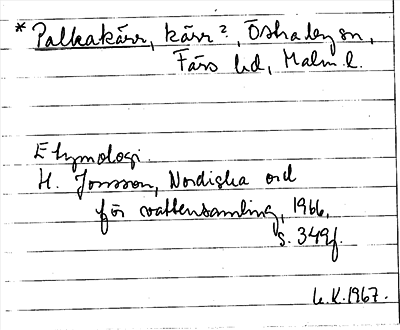 * Palkakärr, kärr?, Östraby sn,
Färs hd, Malm. l.
Etymologi.
H. Jonsson, Nordiska ord
för vattensamling, 1966,
s. 349f.
U.K.1967.